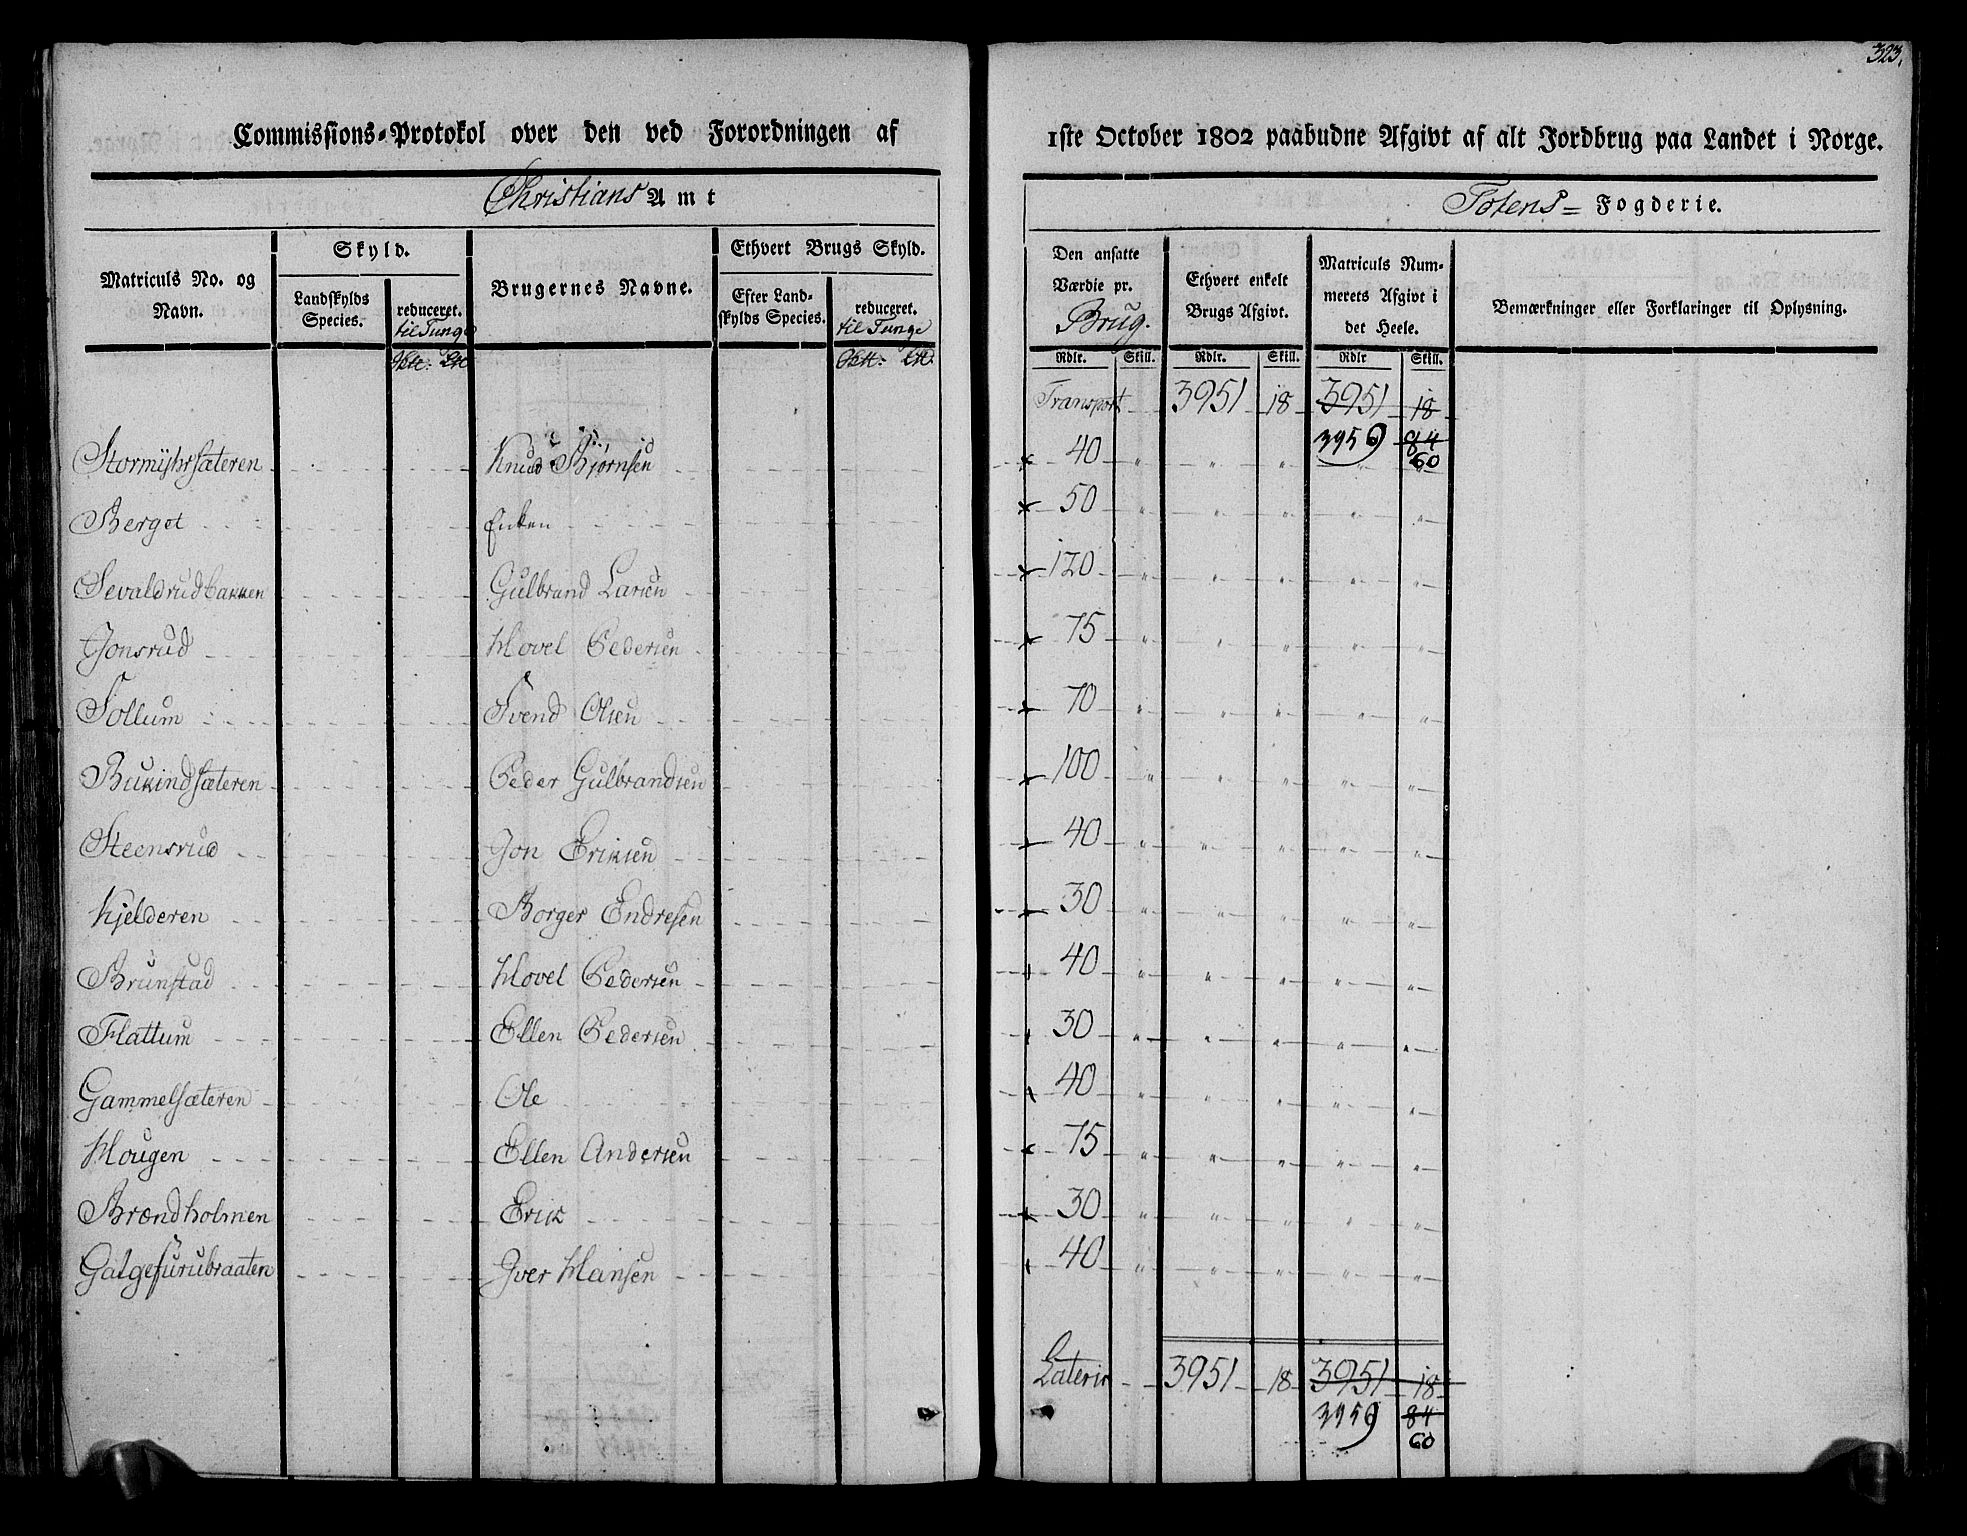 323.
Commissions-Protokol over den ved Forordningen af 1ste October 1802 paabudne Afgivt af alt Jordbrug paa Landet i Norge.
Christians Amt Totens = Fogderie.
Matriculs No. og Navn. Skyld. Landskylds Species. reduceret. til Tunge Brugernes Navne. Ethvert Brugs Skyld. Efter Landskylds Species. reduceret. til Tunge Den ansatte Værdie pr. Brug. Ethvert enkelt Brugs Afgivt. Matriculs Nummerets Afgivt i det Heele. Bemærkninger eller Forklaringer til Oplysning.
Rdlr. Skill. Rdlr. Skill. Rdlr Skill.
Transport 3951 18 3951 18
3959 84
60
Stormyhrsæteren Knud Bjørnsen 40 " " " "
Berget Enken 50 " " " " "
Sevaldrudbakken Gulbrand Larsen 120 " " " " "
Jonsrud Hovel Pedersen 75 " " " " "
Sollum Svend Olsen 70 " " " " "
Bukindsæteren Peder Gulbrandsen 100 " " " " "
Steensrud Jon Eriksen 40 " " " " "
Kjelderen Borger Endresen 30 " " " " "
Brunstad Hovel Pedersen 40 " " " " "
Flattum Ellen Pedersen 30 " " " " "
Gammelsæteren Ole 40 " " " " "
Hougen Ellen Andersen 75 " " " " "
Brændholmen Erik 30 " " " " "
Galgefurubraaten Iver Hansen 40 " " " " "
Lateris 3951 18 3951 18
3959 84
60